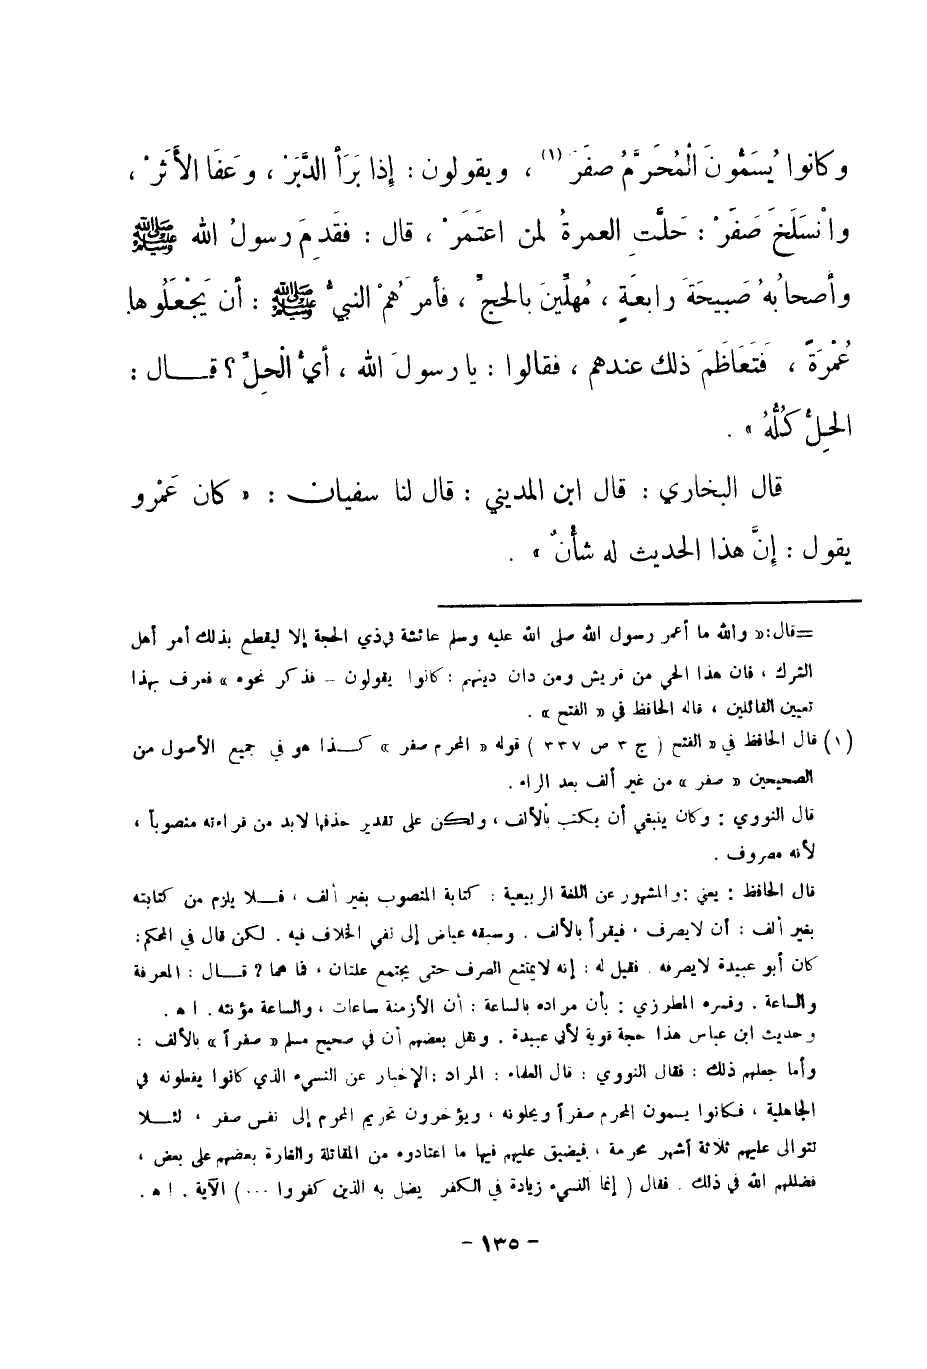 وكانوا يُسَمُّونَ الْمُحَرَّمُ صفَرَ (١) ، ويقولون : إذا بَرَأ الدَّبَرْ ، وعَفَا الأَثَرْ ،
وانْسَلَخَ صَفَرْ : حَلَّتِ العمرةُ لمن اعتَمَرْ ، قال : فقَدِمَ رسولُ الله ﷺ
وأصحابُهُ صَبِيحَةَ رابعةٍ ، مُهلِّينَ بالحجِّ ، فأمرَهُمْ النبيُّ ﷺ : أن يَجْعَلُوها
عُمْرَةً ، فَتَعَاظَمَ ذلك عندهم ، فقالوا : يا رسولَ الله ، أيُّ الْحِلِّ ؟ قــال :
الحِلُّ كُلُّهُ » .
قال البخاري : قال ابن المديني : قال لنا سفيان : « كان عَمْرو
يقول : إنَّ هذا الحديث له شأنٌ » .
=قال:« والله ما أعمر رسول الله صلى الله عليه وسلم عائشة في ذي الحجة إلا ليقطع بذلك أمر أهل
الشرك ، فان هذا الحي من قريش ومن دان دينهم : كانوا يقولون – فذكر نحوه » فعرف بهذا
تعيين القائلين ، قاله الحافظ في « الفتح » .
(١) قال الحافظ في « الفتح ( ج ٣ ص ٣٣٧ ) قوله « المحرم صفر » كــذا هو في جميع الأصول من
الصحيحين « صفر » من غير ألف بعد الراء .
قال النووي : وكان ينبغي أن يكتب بالألف ، ولكن على تقدير حذفها لابد من قراءته منصوباً ،
لأنه مصروف .
قال الحافظ : يعني :والمشهور عن اللغة الربيعية : كتابة المنصوب بغير ألف ، فــلا يلزم من كتابته
بغير ألف : أن لايصرف ، فيقرأ بالألف . وسبقه عياض إلى نفي الخلاف فيه . لكن قال في المحكم:
كان أبو عبيدة لايصرفه . فقيل له : إنه لايمتنع الصرف حتى يجتمع علتان ، فما هما ? قــال : المعرفة
والساعة . وفسره المطرزي : بأن مراده بالساعة : أن الأزمنة ساعات ، والساعة مؤنثه . اه .
وحديث ابن عباس هذا حجة قوية لأبي عبيدة . ونقل بعضهم أن في صحيح مسلم « صفراً » بالألف :
وأما جعلهم ذلك : فقال النووي : قال العلماء : المراد :الإخبار عن النسيء الذي كانوا يفعلونه في
الجاهلية ، فكانوا يسمون المحرم صفراً ويحلونه ، ويؤخرون تحريم المحرم إلى نفس صفر ، لئــلا
تتوالى عليهم ثلاثة أشهر محرمة ، فيضيق عليهم فيها ما اعتادوه من المقاتلة والغارة بعضهم على بعض ،
فضللهم الله في ذلك . فقال ( إنما النسيء زيادة في الكفر يضل به الذين كفروا ... ) الآية . اه .
- ١٣٥ -